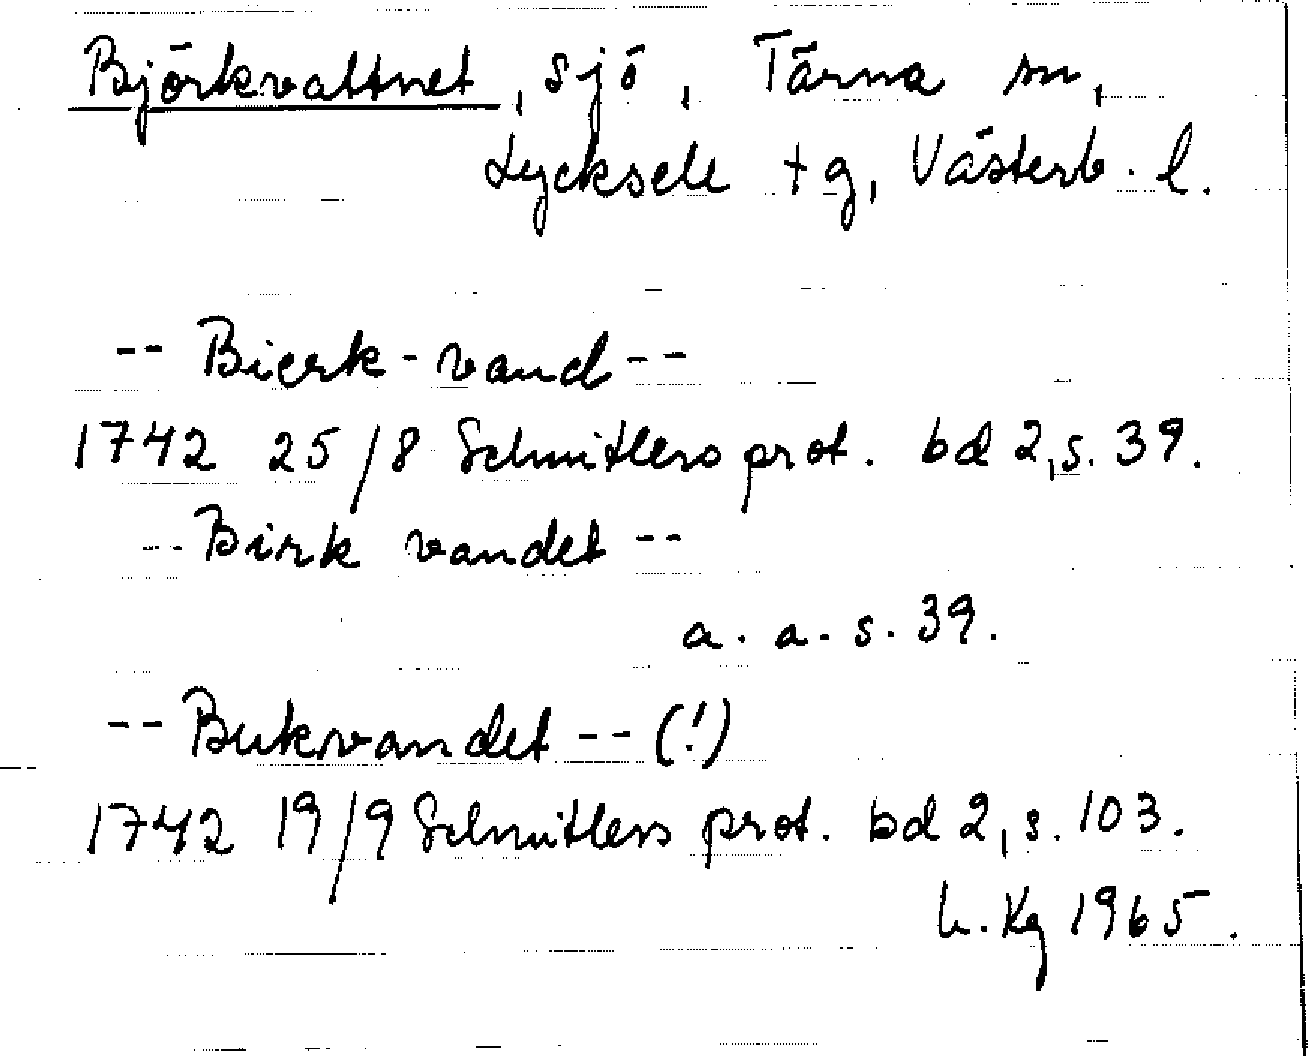 Björkvattnet, sjö, Tärna sn,
Lycksele tg, Västerb. l.
-- Bierk-vand --
1742 25/8 Schnitlers prot. bd 2, s. 39.
-- Birk vandet --
a. a. s. 39.
-- Bukvandet -- (!)
1742 19/9 Schnitlers prot. bd 2, s. 103.
L. Kg 1965.